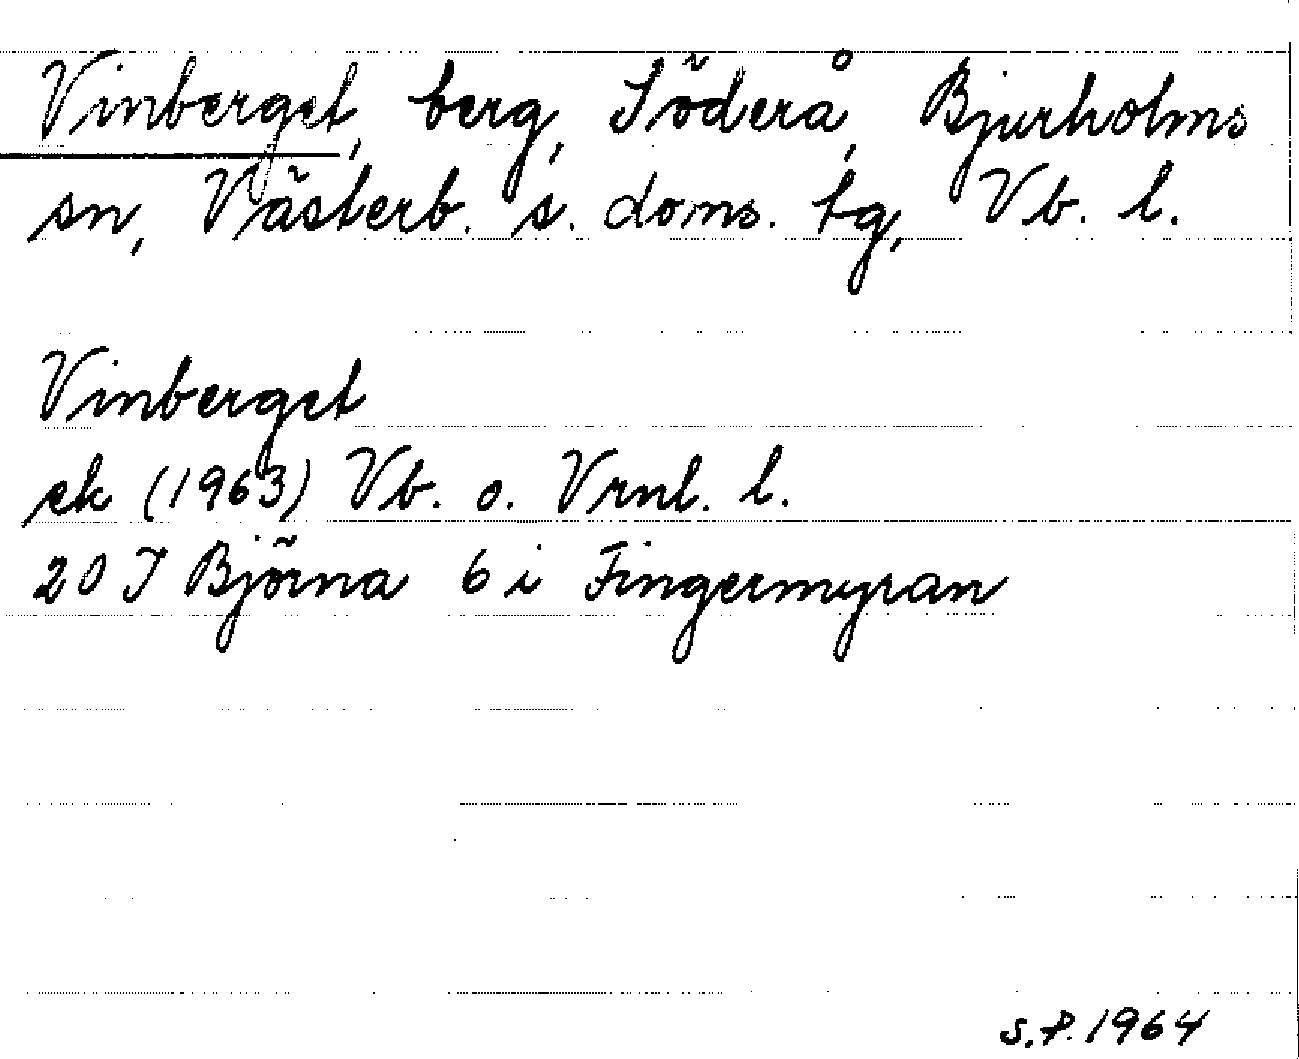 Vinberget, berg, Söderå, Bjurholms
sn, Västerb. s. doms. tg, Vb. l.
Vinberget
ek (1963) Vb. o. Vrnl. l.
20 J Björna 6 i Fingermyran
S.P. 1964